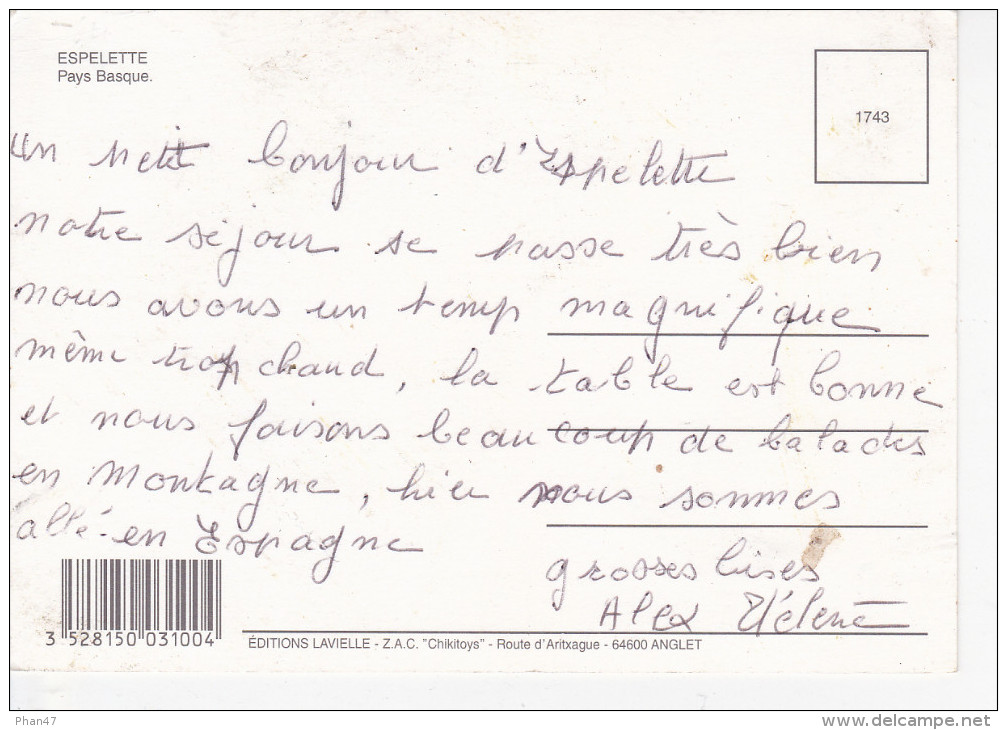 ESPELETTE
Pays Basque.
1743
Un petit bonjour d'Espelette
notre séjour se passe très bien
nous avons un temp magnifique
même trop chaud, la table est bonne
et nous faisons beaucoup de balades
en Montagne, hier nous sommes
allé en Espagne
grosses bises
Alex Hélène
3 528150 031004
ÉDITIONS LAVIELLE - Z.A.C. "Chikitoys" - Route d'Aritxague - 64600 ANGLET
Phan47
www.delcampe.net